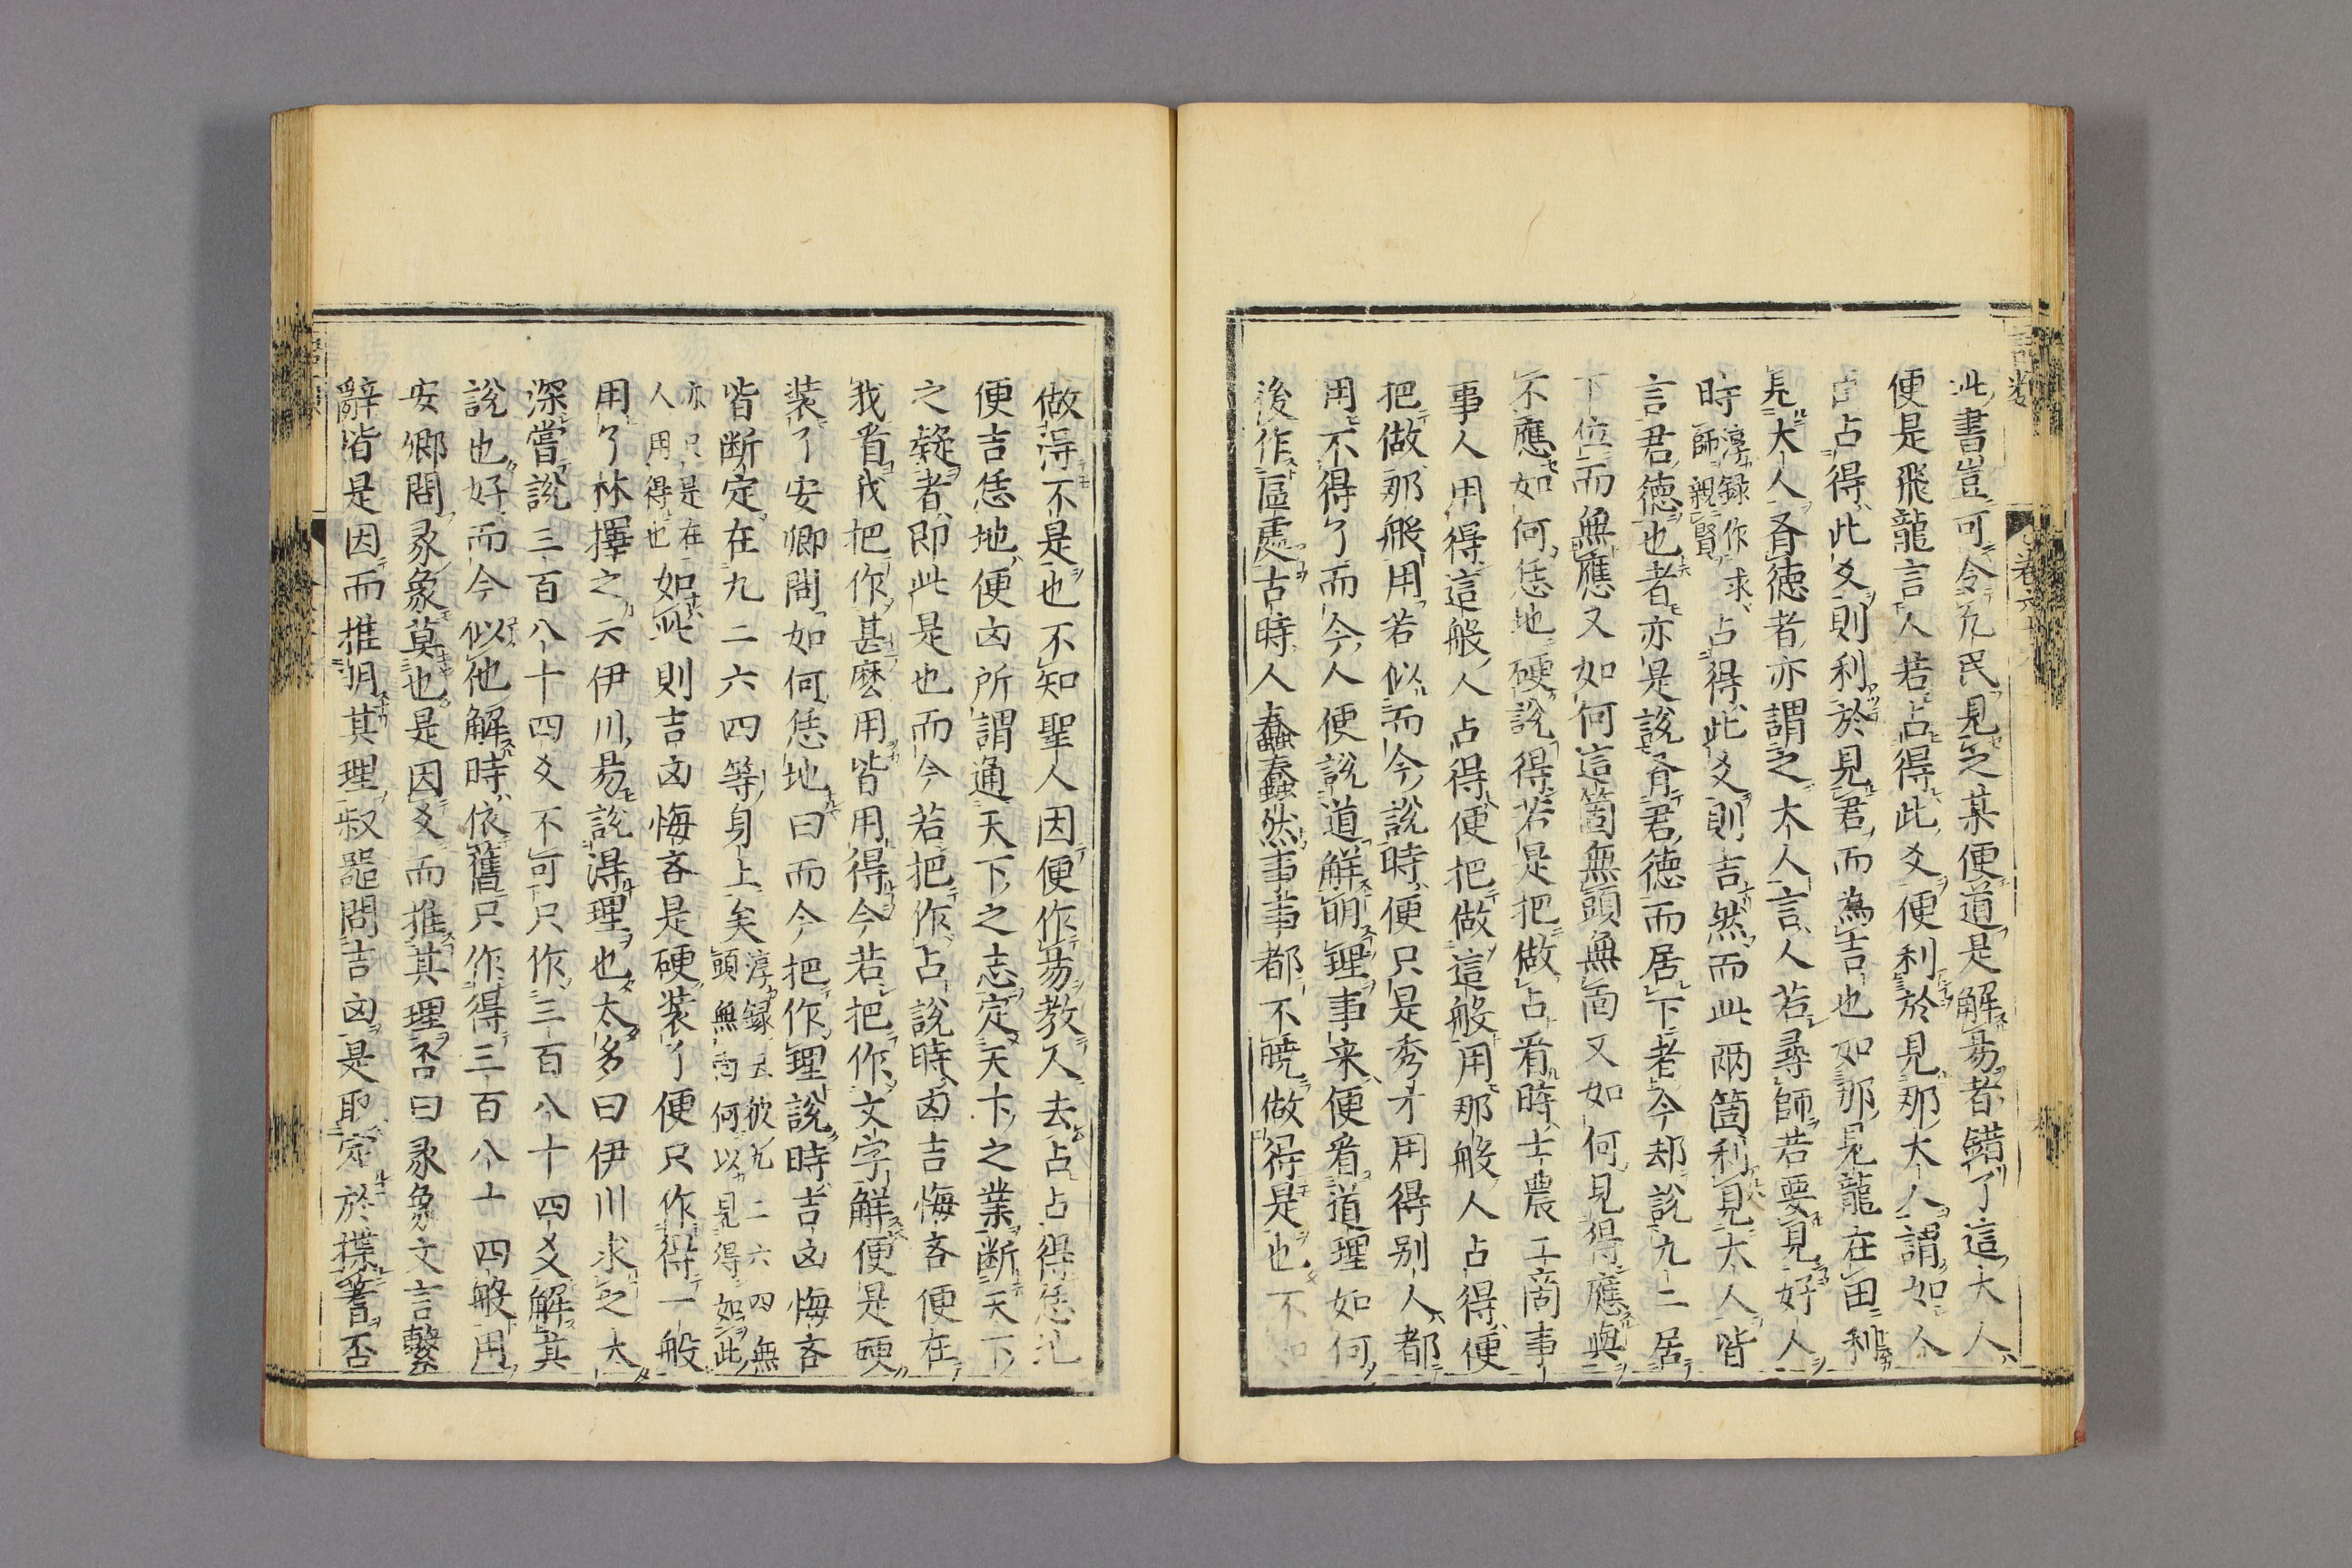 此書豈可令凢民見之某便道是解易者錯了這大人
便是飛龍言人若占得此爻便利於見那大人謂如人
占得此爻則利於見君而為吉也如那見龍在田利
見大人有徳者亦謂之大人言人若尋師若要見好人
時淳録作求師親賢占得此爻則吉然而此兩箇利見大人皆
言君徳也者亦是說有君徳而居下者今却說九二居
下位而無應又如何這箇無頭無靣又如何見得應與
不應如何恁地硬說得若是把做占看時士農工商事
事人用得這般人占得便把做這般用那般人占得便
把做那般用若似而今說時便只是秀才用得别人都
用不得了而今人便說道解明理事来便看道理如何
後作區處古時人蠢蠢然事事都不暁做得是也不知
做淂不是也不知聖人因便作易教人去占占得恁地
便吉恁地便凶所謂通天下之志定天下之業断天下
之疑者即此是也而今若把作占說時凶吉悔吝便在
我看我把作甚麽用皆用得今若把作文字觧便是硬
装了安卿問如何恁地曰而今把作理說時吉凶悔吝
皆断定在九二六四等身上矣淳録云彼九二六四無頭無靣何以見得如此
亦只是在人用得也如此則吉凶悔吝是硬装了便只作得一般
用了林擇之云伊川易說淂理也太多曰伊川求之太
深嘗說三百八十四爻不可只作三百八十四爻解其
說也好而今似他解時依舊只作得三百八十四般用
安卿問彖象莫也是因爻而推其理否曰彖象文言繫
辭皆是因而推明其理叔噐問吉凶是取定於揲蓍否